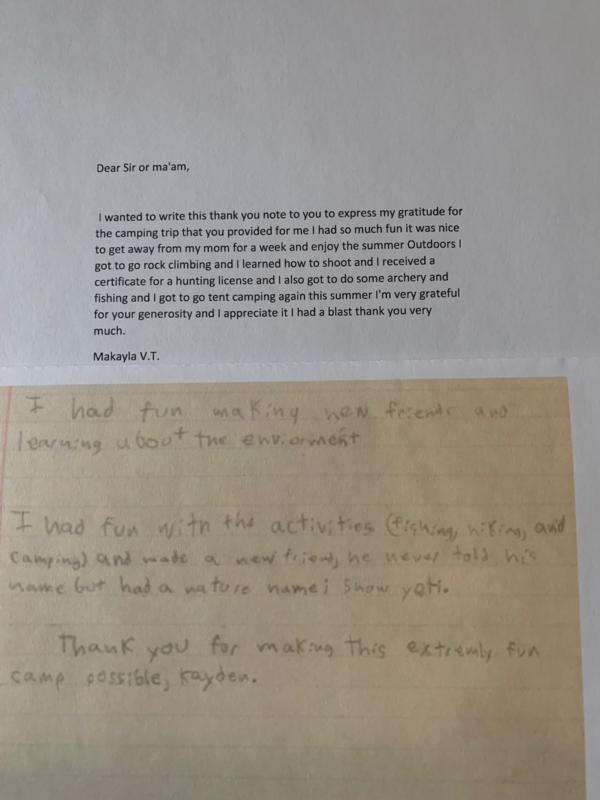 Dear Sir or ma'am,
I wanted to write this thank you note to you to express my gratitude for
the camping trip that you provided for me I had so much fun it was nice
to get away from my mom for a week and enjoy the summer Outdoors I
got to go rock climbing and I learned how to shoot and I received a
certificate for a hunting license and I also got to do some archery and
fishing and I got to go tent camping again this summer I'm very grateful
for your generosity and I appreciate it I had a blast thank you very
much.
Makayla V.T.
I had fun making new friends and
learning about the enviorment
I had fun with the activities (fishing, hiking, and
camping) and made a new friend, he never told his
name but had a nature name; Snow yeti.
Thank you for making this extremly fun
camp possible, Kayden.